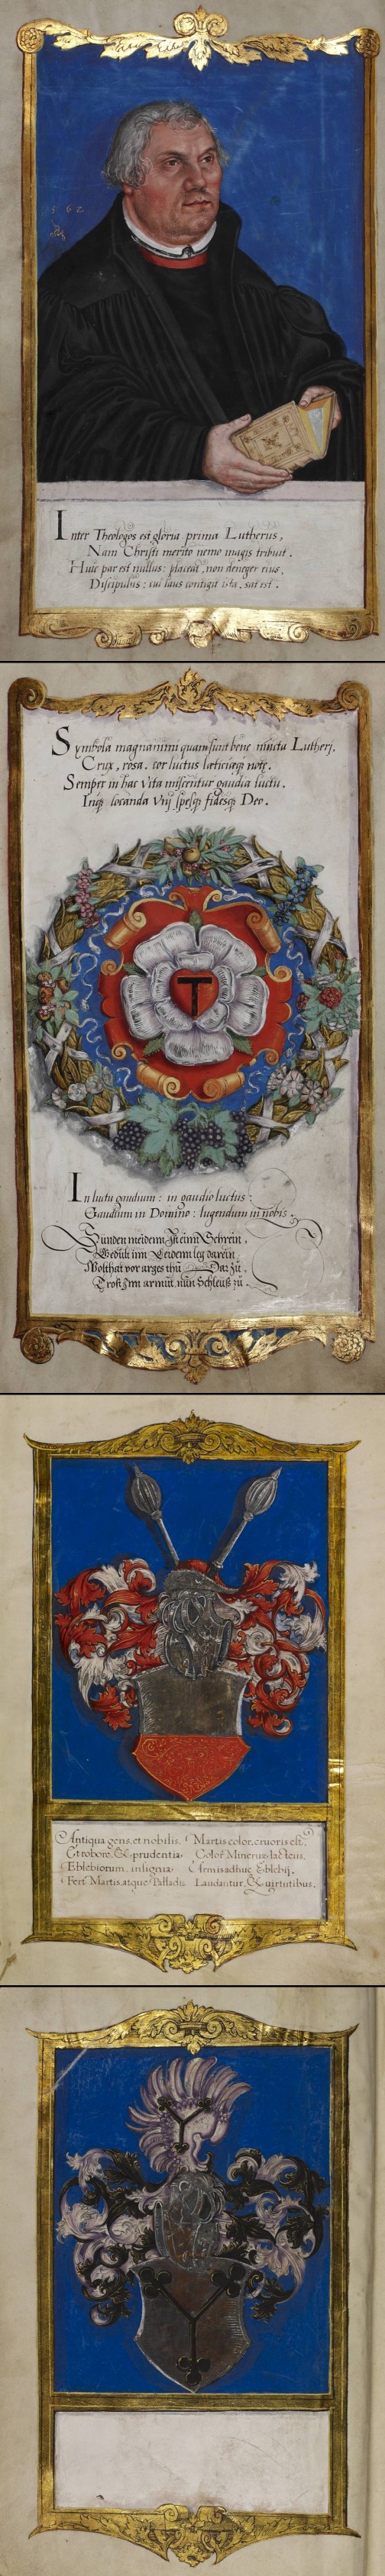 562
Inter Theologos est gloria prima Lutherus,
Nam Christi merito nemo magis tribuit.
Huic par est nullus: placeat, non deneger eius,
Discipulus: cui laus contigit ista, sat est.
Symbola magnanimi quam sunt bene iuncta Lutheri,
Crux, rosa, cor luctus lætitiæq; notę.
Semper in hac vita miscentur gaudia luctu,
Inq; locanda vni spesq; fidesq; Deo.
In luctu gaudium: in gaudio luctus:
Gaudium in Domino: lugendum in nobis.
Sünden meidenn Ist einn Schrein,
Gedült inn Leidenn leg darein,
Wolthat vor arges thu Dar zu
Trost Inn armut, nun Schleuß zu.
Antiqua gens, et nobilis. Martis color, cruoris est,
Et robore, & prudentia. Color Mineruæ lacteus.
Eblebiorum insignia. Armis adhuc Eblebij,
Fert Martis, atque Palladis Laudantur, & uirtutibus.